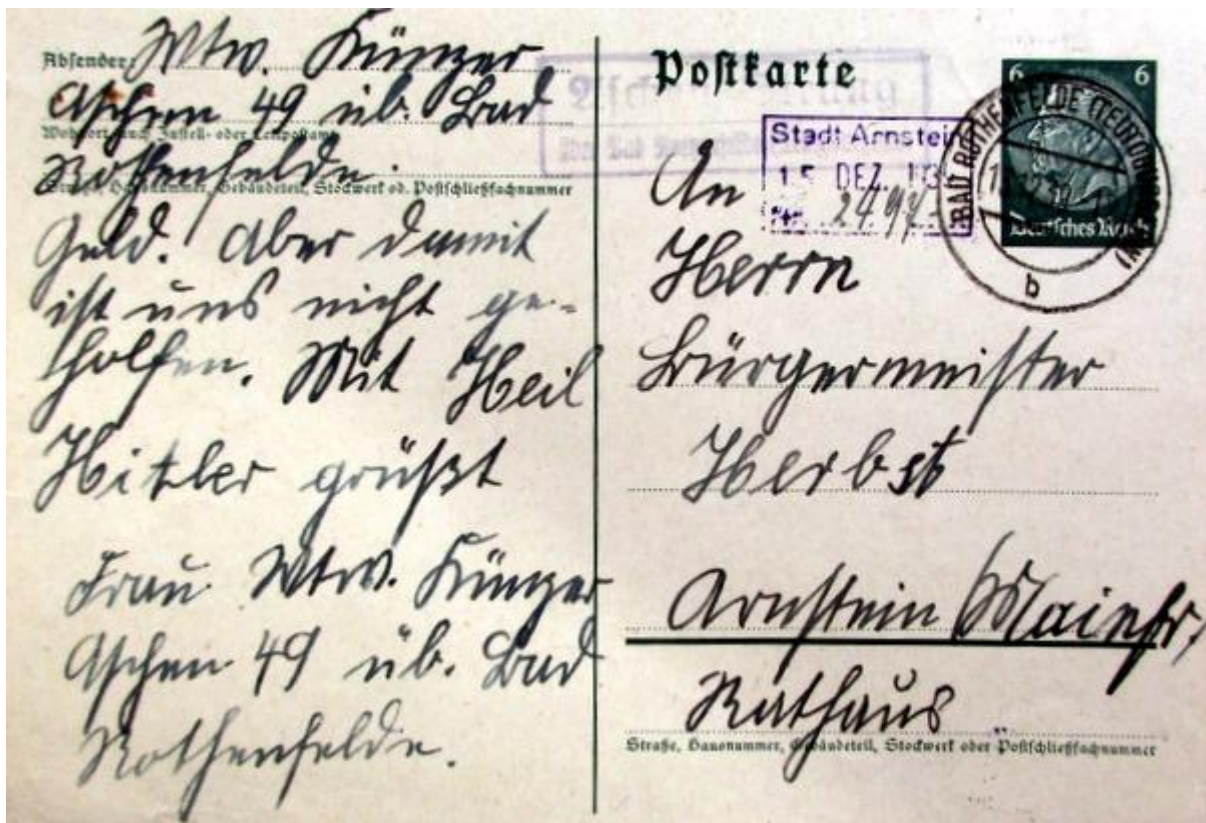 Absender: Wtw. Künzer
Aschen 49 üb. Bad
Wohnort, auch Zustell- oder Leitpostamt
Rothenfelde.
Straße, Hausnummer, Gebäudeteil, Stockwerk od. Postschließfachnummer
Geld. Aber damit
ist uns nicht ge-
holfen. Mit Heil
Hitler grüßt
Frau Wtw. Künzer
Aschen 49 üb. Bad
Rothenfelde.
Postkarte
6 6
Deutsches Reich
BAD ROTHENFELDE (TEUTOBURG
b
Stadt Arnstein
15. DEZ. 193
Nr. 2497
An
Herrn
Bürgermeister
Herbst
Arnstein (Mainfr.
Rathaus
Straße, Hausnummer, Gebäudeteil, Stockwerk oder Postschließfachnummer